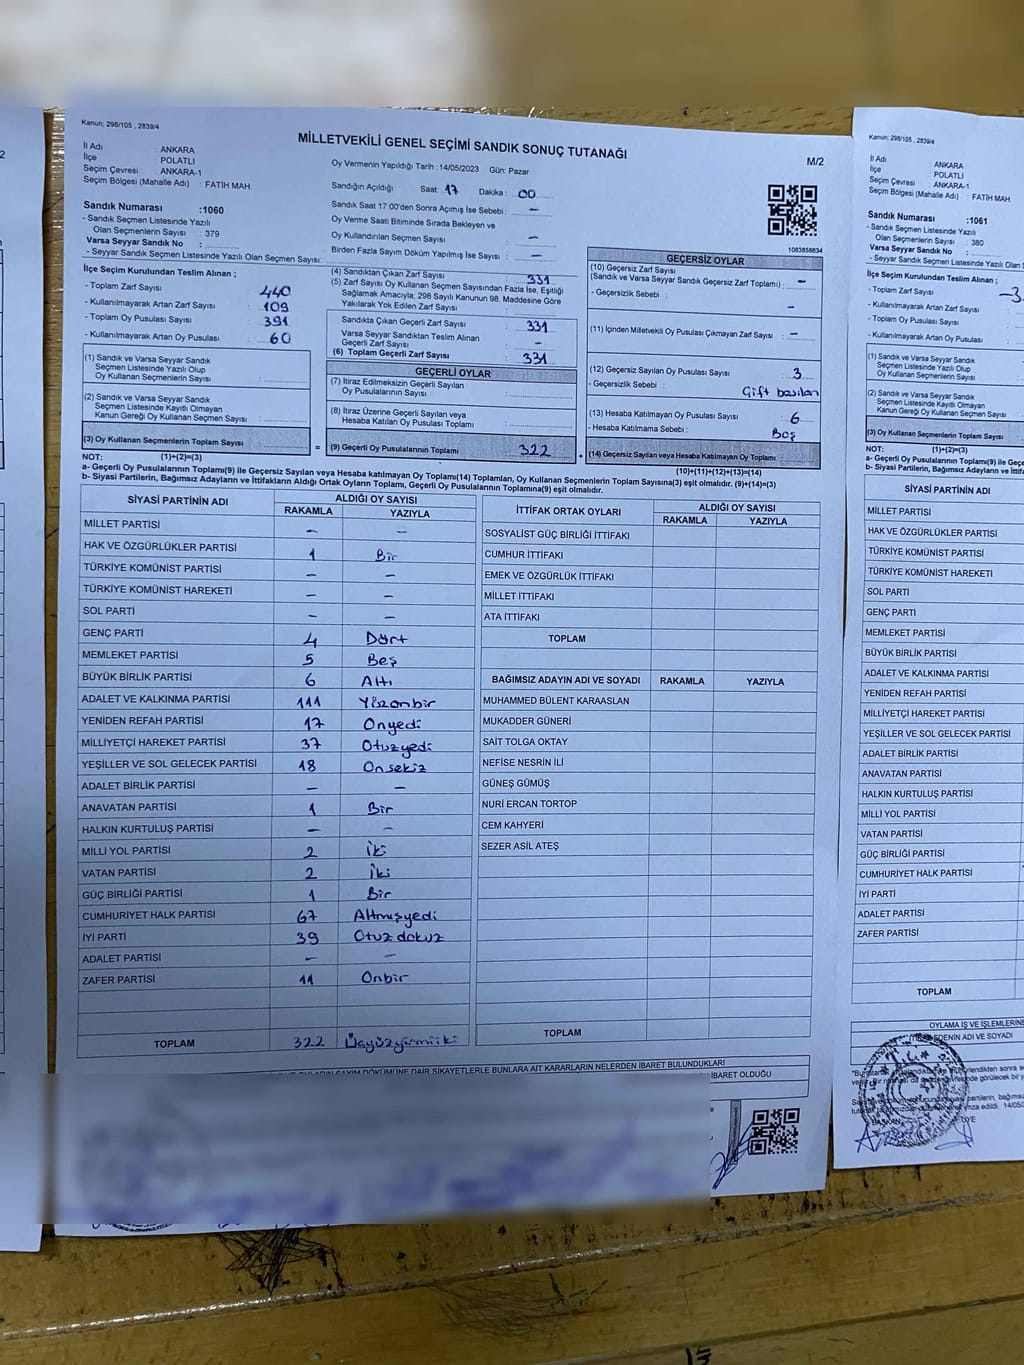 Kanun; 298/105 , 2839/4
MİLLETVEKİLİ GENEL SEÇİMİ SANDIK SONUÇ TUTANAĞI
M/2
İl Adı : ANKARA
İlçe : POLATLI
Seçim Çevresi : ANKARA-1
Seçim Bölgesi (Mahalle Adı) : FATİH MAH.
Sandık Numarası :1060
- Sandık Seçmen Listesinde Yazılı
Olan Seçmenlerin Sayısı : 379
Varsa Seyyar Sandık No :
- Seyyar Sandık Seçmen Listesinde Yazılı Olan Seçmen Sayısı:
Oy Vermenin Yapıldığı Tarih : 14/05/2023 Gün: Pazar
Sandığın Açıldığı Saat: 17 Dakika : 00
Sandık Saat 17:00'den Sonra Açımış İse Sebebi : -
Oy Verme Saati Bitiminde Sırada Bekleyen ve
Oy Kullandırılan Seçmen Sayısı : -
Birden Fazla Sayım Döküm Yapılmış İse Sayısı : -
1083858834
İlçe Seçim Kurulundan Teslim Alınan ;
- Toplam Zarf Sayısı : 440
- Kullanılmayarak Artan Zarf Sayısı : 109
- Toplam Oy Pusulası Sayısı : 391
- Kullanılmayarak Artan Oy Pusulası : 60
(1) Sandık ve Varsa Seyyar Sandık
Seçmen Listesinde Yazılı Olup
Oy Kullanan Seçmenlerin Sayısı :
(2) Sandık ve Varsa Seyyar Sandık
Seçmen Listesinde Kayıtlı Olmayan
Kanun Gereği Oy Kullanan Seçmen Sayısı :
(3) Oy Kullanan Seçmenlerin Toplam Sayısı :
(4) Sandıktan Çıkan Zarf Sayısı : 331
(5) Zarf Sayısı Oy Kullanan Seçmen Sayısından Fazla İse, Eşitliği
Sağlamak Amacıyla; 298 Sayılı Kanunun 98. Maddesine Göre
Yakılarak Yok Edilen Zarf Sayısı :
Sandıkta Çıkan Geçerli Zarf Sayısı : 331
Varsa Seyyar Sandıktan Teslim Alınan
Geçerli Zarf Sayısı : -
(6) Toplam Geçerli Zarf Sayısı : 331
GEÇERLİ OYLAR
(7) İtiraz Edilmeksizin Geçerli Sayılan
Oy Pusulalarının Sayısı :
(8) İtiraz Üzerine Geçerli Sayılan veya
Hesaba Katılan Oy Pusulaları Toplamı :
= (9) Geçerli Oy Pusulalarının Toplamı : 322
GEÇERSİZ OYLAR
(10) Geçersiz Zarf Sayısı
(Sandık ve Varsa Seyyar Sandık Geçersiz Zarf Toplamı) : -
- Geçersizlik Sebebi : -
(11) İçinden Milletvekili Oy Pusulası Çıkmayan Zarf Sayısı : -
(12) Geçersiz Sayılan Oy Pusulası Sayısı : 3
- Geçersizlik Sebebi : Çift basılan
(13) Hesaba Katılmayan Oy Pusulası Sayısı : 6
- Hesaba Katılmama Sebebi : Boş
+ (14) Geçersiz Sayılan veya Hesaba Katılmayan Oy Toplamı :
NOT: (1)+(2)=(3)
(10)+(11)+(12)+(13)=(14)
a- Geçerli Oy Pusulalarının Toplamı(9) ile Geçersiz Sayılan veya Hesaba katılmayan Oy Toplamı(14) Toplamları, Oy Kullanan Seçmenlerin Toplam Sayısına(3) eşit olmalıdır. (9)+(14)=(3)
b- Siyasi Partilerin, Bağımsız Adayların ve İttifakların Aldığı Ortak Oyların Toplamı, Geçerli Oy Pusulalarının Toplamına(9) eşit olmalıdır.
SİYASİ PARTİNİN ADI ALDIĞI OY SAYISI
RAKAMLA YAZIYLA
MİLLET PARTİSİ - -
HAK VE ÖZGÜRLÜKLER PARTİSİ 1 Bir
TÜRKİYE KOMÜNİST PARTİSİ - -
TÜRKİYE KOMÜNİST HAREKETİ - -
SOL PARTİ - -
GENÇ PARTİ 4 Dört
MEMLEKET PARTİSİ 5 Beş
BÜYÜK BİRLİK PARTİSİ 6 Altı
ADALET VE KALKINMA PARTİSİ 111 Yüzonbir
YENİDEN REFAH PARTİSİ 17 Onyedi
MİLLİYETÇİ HAREKET PARTİSİ 37 Otuzyedi
YEŞİLLER VE SOL GELECEK PARTİSİ 18 Onsekiz
ADALET BİRLİK PARTİSİ - -
ANAVATAN PARTİSİ 1 Bir
HALKIN KURTULUŞ PARTİSİ - -
MİLLİ YOL PARTİSİ 2 İki
VATAN PARTİSİ 2 İki
GÜÇ BİRLİĞİ PARTİSİ 1 Bir
CUMHURİYET HALK PARTİSİ 67 Altmışyedi
İYİ PARTİ 39 Otuzdokuz
ADALET PARTİSİ - -
ZAFER PARTİSİ 11 Onbir
TOPLAM 322 Üçyüzyirmiiki
İTTİFAK ORTAK OYLARI ALDIĞI OY SAYISI
RAKAMLA YAZIYLA
SOSYALİST GÜÇ BİRLİĞİ İTTİFAKI
CUMHUR İTTİFAKI
EMEK VE ÖZGÜRLÜK İTTİFAKI
MİLLET İTTİFAKI
ATA İTTİFAKI
TOPLAM
BAĞIMSIZ ADAYIN ADI VE SOYADI RAKAMLA YAZIYLA
MUHAMMED BÜLENT KARAASLAN
MUKADDER GÜNERİ
SAİT TOLGA OKTAY
NEFİSE NESRİN İLİ
GÜNEŞ GÜMÜŞ
NURİ ERCAN TORTOP
CEM KAHYERİ
SEZER ASİL ATEŞ
TOPLAM
SAYIM DÖKÜMÜNE DAİR ŞİKAYETLERLE BUNLARA AİT KARARLARIN NELERDEN İBARET BULUNDUKLARI
İBARET OLDUĞU
Kanun; 298/105 , 2839/4
İl Adı : ANKARA
İlçe : POLATLI
Seçim Çevresi : ANKARA-1
Seçim Bölgesi (Mahalle Adı) : FATİH MAH
Sandık Numarası :1061
- Sandık Seçmen Listesinde Yazılı
Olan Seçmenlerin Sayısı : 380
Varsa Seyyar Sandık No :
- Seyyar Sandık Seçmen Listesinde Yazılı Ol
İlçe Seçim Kurulundan Teslim Alınan ;
- Toplam Zarf Sayısı
- Kullanılmayarak Artan Zarf Sayısı :
- Toplam Oy Pusulası Sayısı :
- Kullanılmayarak Artan Oy Pusulası :
(1) Sandık ve Varsa Seyyar Sandık
Seçmen Listesinde Yazılı Olup
Oy Kullanan Seçmenlerin Sayısı
(2) Sandık ve Varsa Seyyar Sandık
Seçmen Listesinde Kayıtlı Olmayan
Kanun Gereği Oy Kullanan Seçmen Sayısı
(3) Oy Kullanan Seçmenlerin Toplam Sayısı
NOT: (1)+(2)=(3)
a- Geçerli Oy Pusulalarının Toplamı(9) ile Geçe
b- Siyasi Partilerin, Bağımsız Adayların ve İttifa
SİYASİ PARTİNİN ADI
MİLLET PARTİSİ
HAK VE ÖZGÜRLÜKLER PARTİSİ
TÜRKİYE KOMÜNİST PARTİSİ
TÜRKİYE KOMÜNİST HAREKETİ
SOL PARTİ
GENÇ PARTİ
MEMLEKET PARTİSİ
BÜYÜK BİRLİK PARTİSİ
ADALET VE KALKINMA PARTİSİ
YENİDEN REFAH PARTİSİ
MİLLİYETÇİ HAREKET PARTİSİ
YEŞİLLER VE SOL GELECEK PARTİSİ
ADALET BİRLİK PARTİSİ
ANAVATAN PARTİSİ
HALKIN KURTULUŞ PARTİSİ
MİLLİ YOL PARTİSİ
VATAN PARTİSİ
GÜÇ BİRLİĞİ PARTİSİ
CUMHURİYET HALK PARTİSİ
İYİ PARTİ
ADALET PARTİSİ
ZAFER PARTİSİ
TOPLAM
OYLAMA İŞ VE İŞLEMLERİNE
EDENİN ADI VE SOYADI